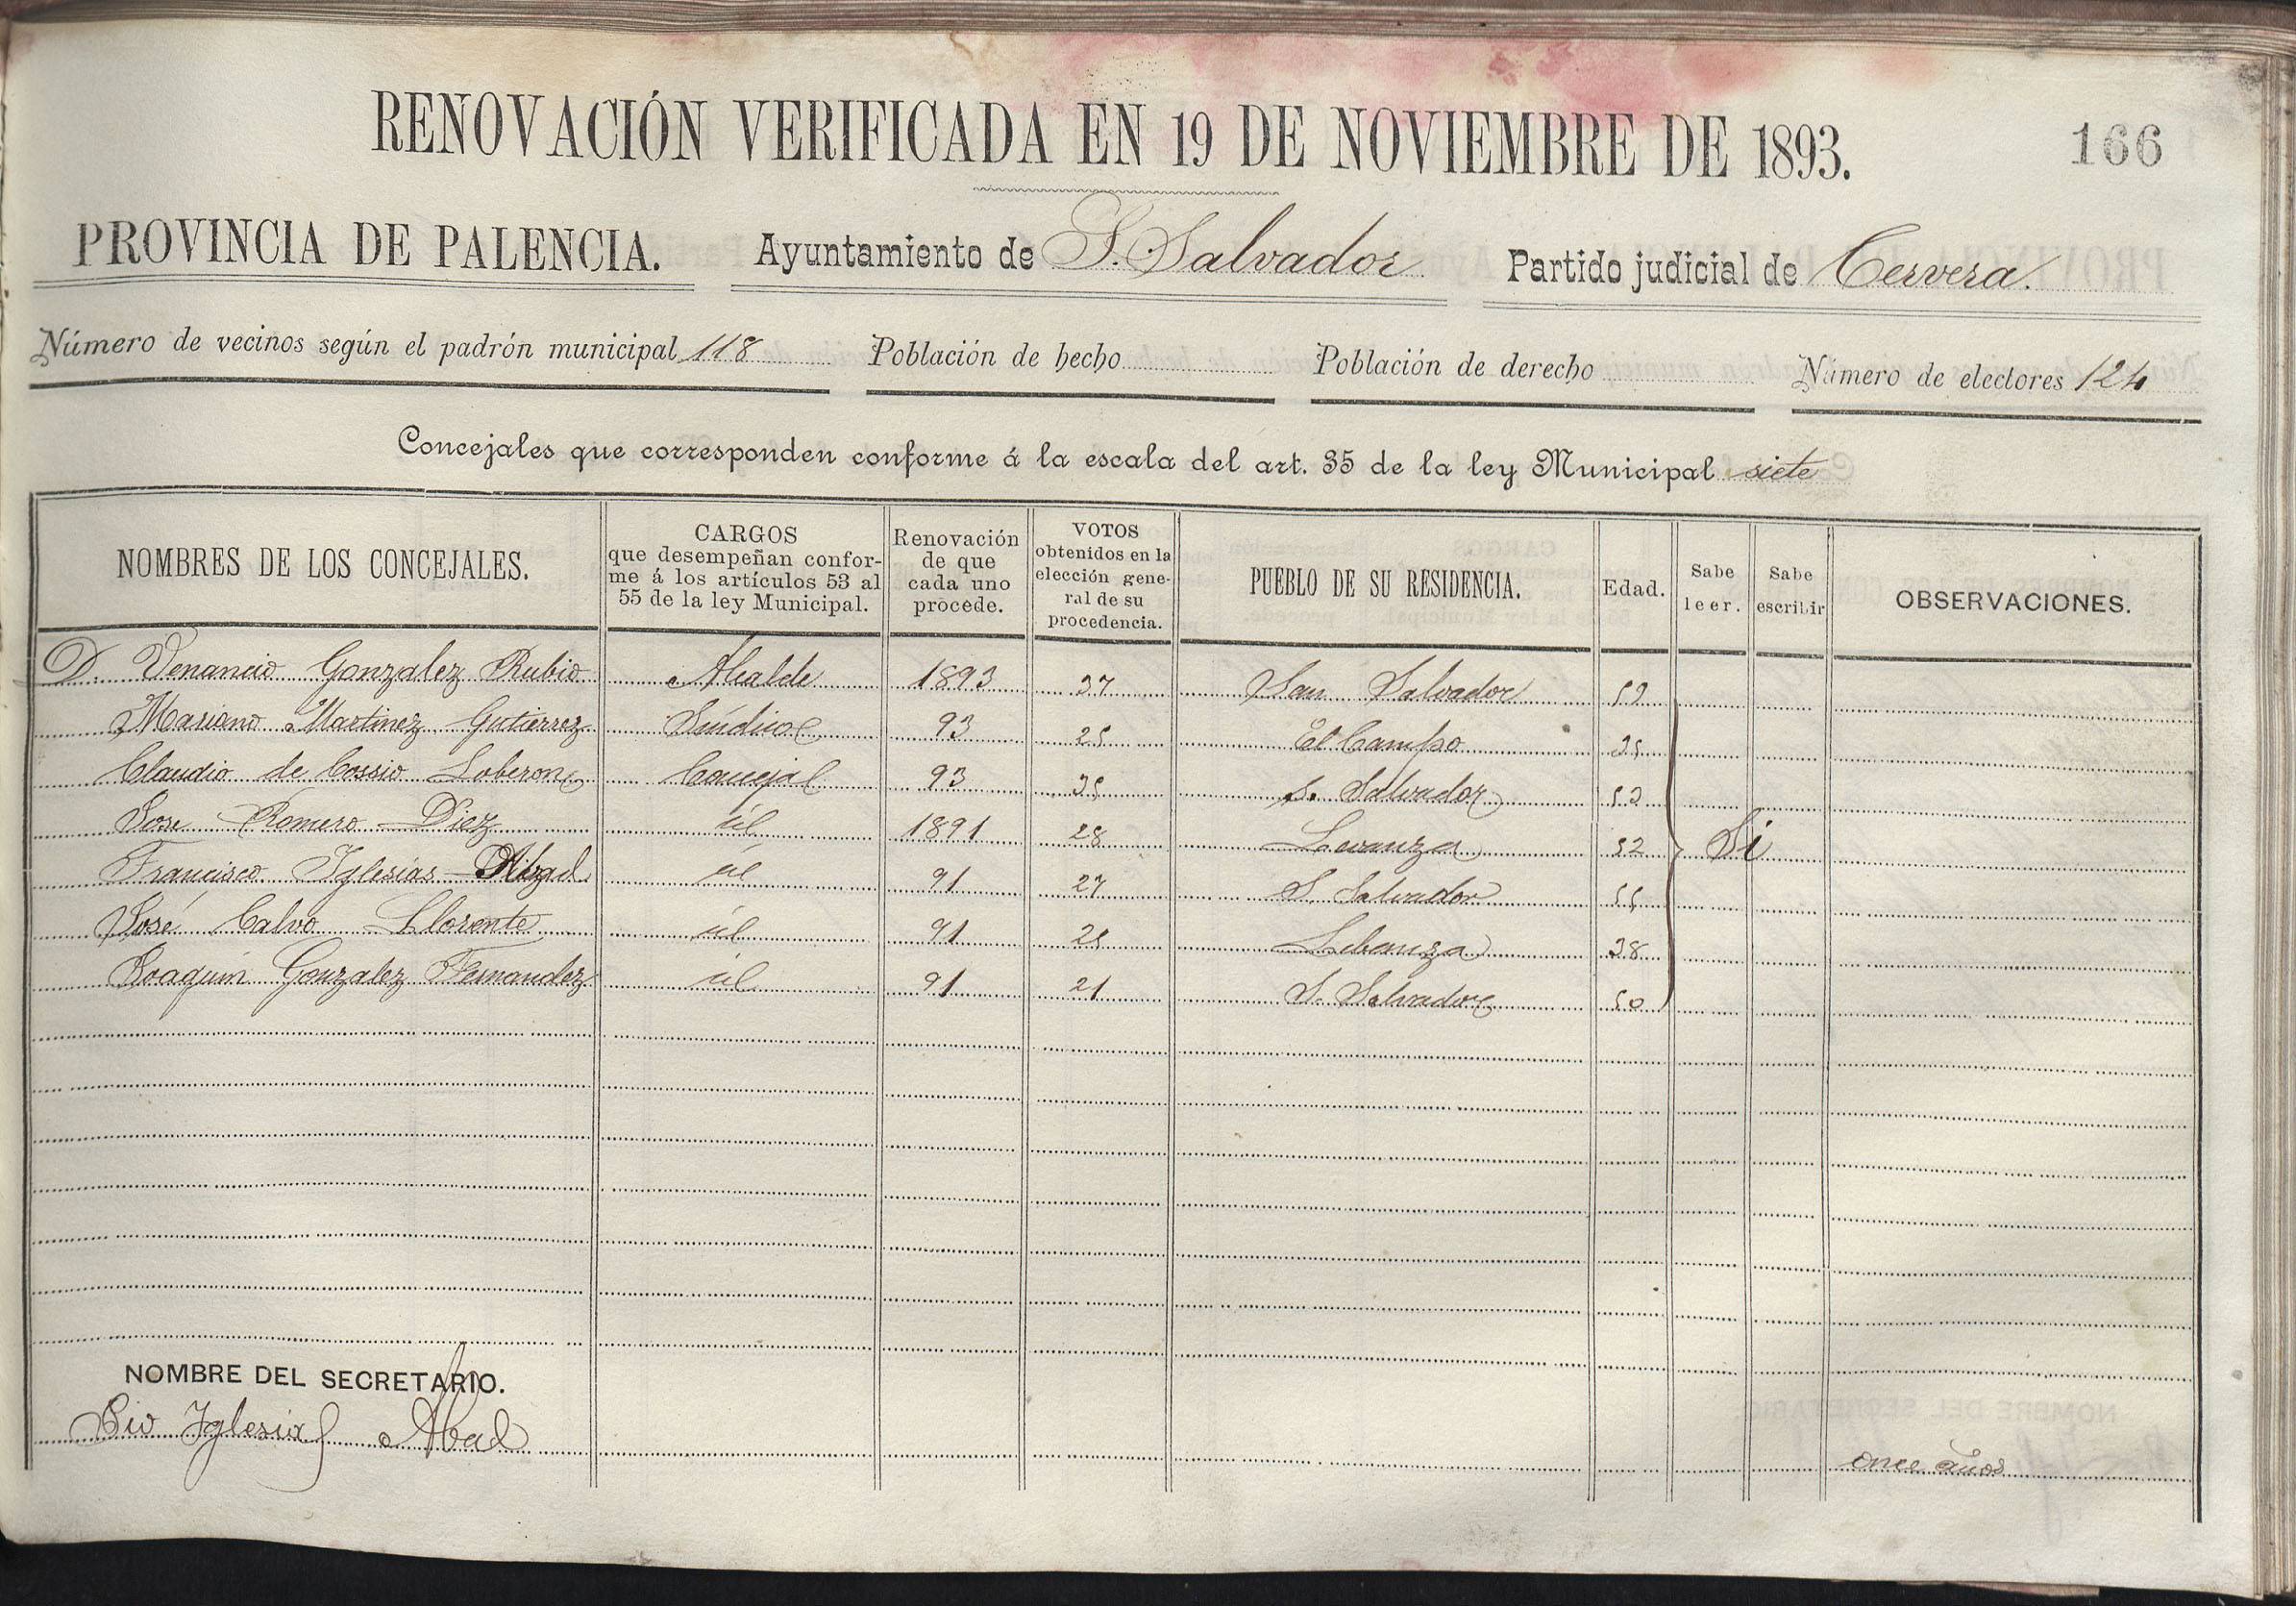 RENOVACIÓN VERIFICADA EN 19 DE NOVIEMBRE DE 1893. 166
PROVINCIA DE PALENCIA. Ayuntamiento de S. Salvador Partido judicial de Cervera.
Número de vecinos según el padrón municipal 118 Población de hecho Población de derecho Número de electores 124
Concejales que corresponden conforme á la escala del art. 35 de la ley Municipal siete
NOMBRES DE LOS CONCEJALES. CARGOS que desempeñan conforme á los artículos 53 al 55 de la ley Municipal. Renovación de que cada uno procede. VOTOS obtenidos en la elección general de su procedencia. PUEBLO DE SU RESIDENCIA. Edad. Sabe leer. Sabe escribir OBSERVACIONES.
D. Venancio Gonzalez Rubio Alcalde 1893 37 San Salvador 52
Mariano Martinez Gutierrez Síndico 93 25 El Campo 35
Claudio de Cossio Loberon Concejal 93 35 S. Salvador 52
Jose Romero Diez id 1891 28 Levanza 32 Si
Francisco Iglesias Abad id 91 27 S. Salvador 55
José Calvo Llorente id 91 25 Lebanza 38
Joaquin Gonzalez Fernandez id 91 21 S. Salvador 50
NOMBRE DEL SECRETARIO.
Pio Iglesias Abad once años